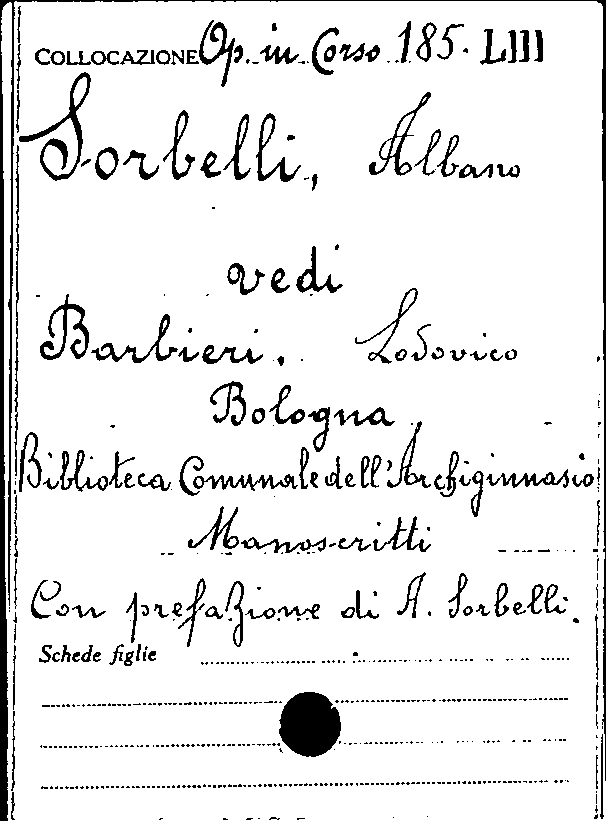 COLLOCAZIONE Op. in Corso 185. LIII
Sorbelli, Albano
vedi
Barbieri, Lodovico
Bologna
Biblioteca Comunale dell'Archiginnasio
Manoscritti
Con prefazione di A. Sorbelli.
Schede figlie